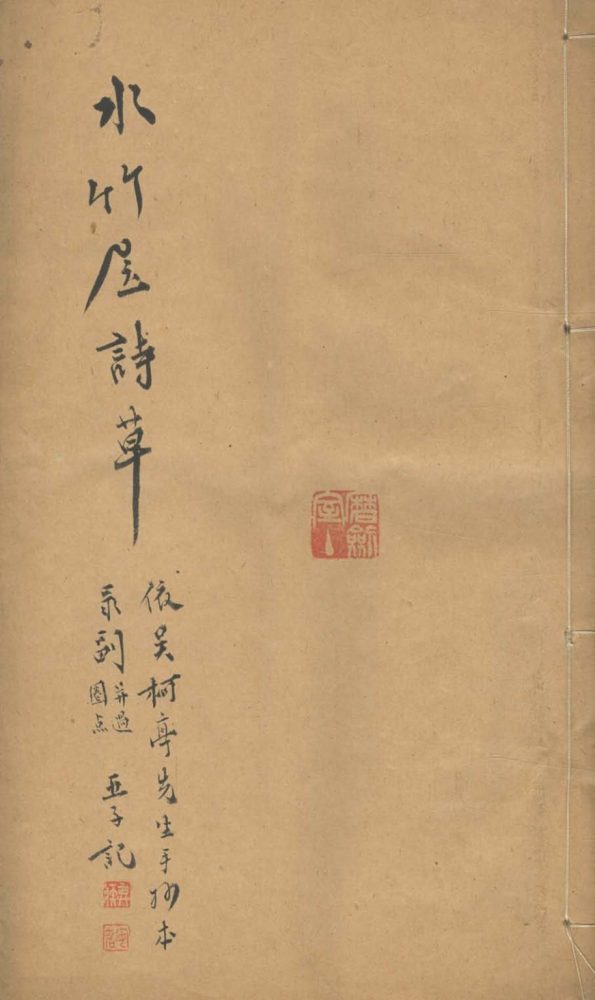 水竹屋詩草
依吳柯亭先生手抄本
录副
并過
圈点
亚子記
磨劍室